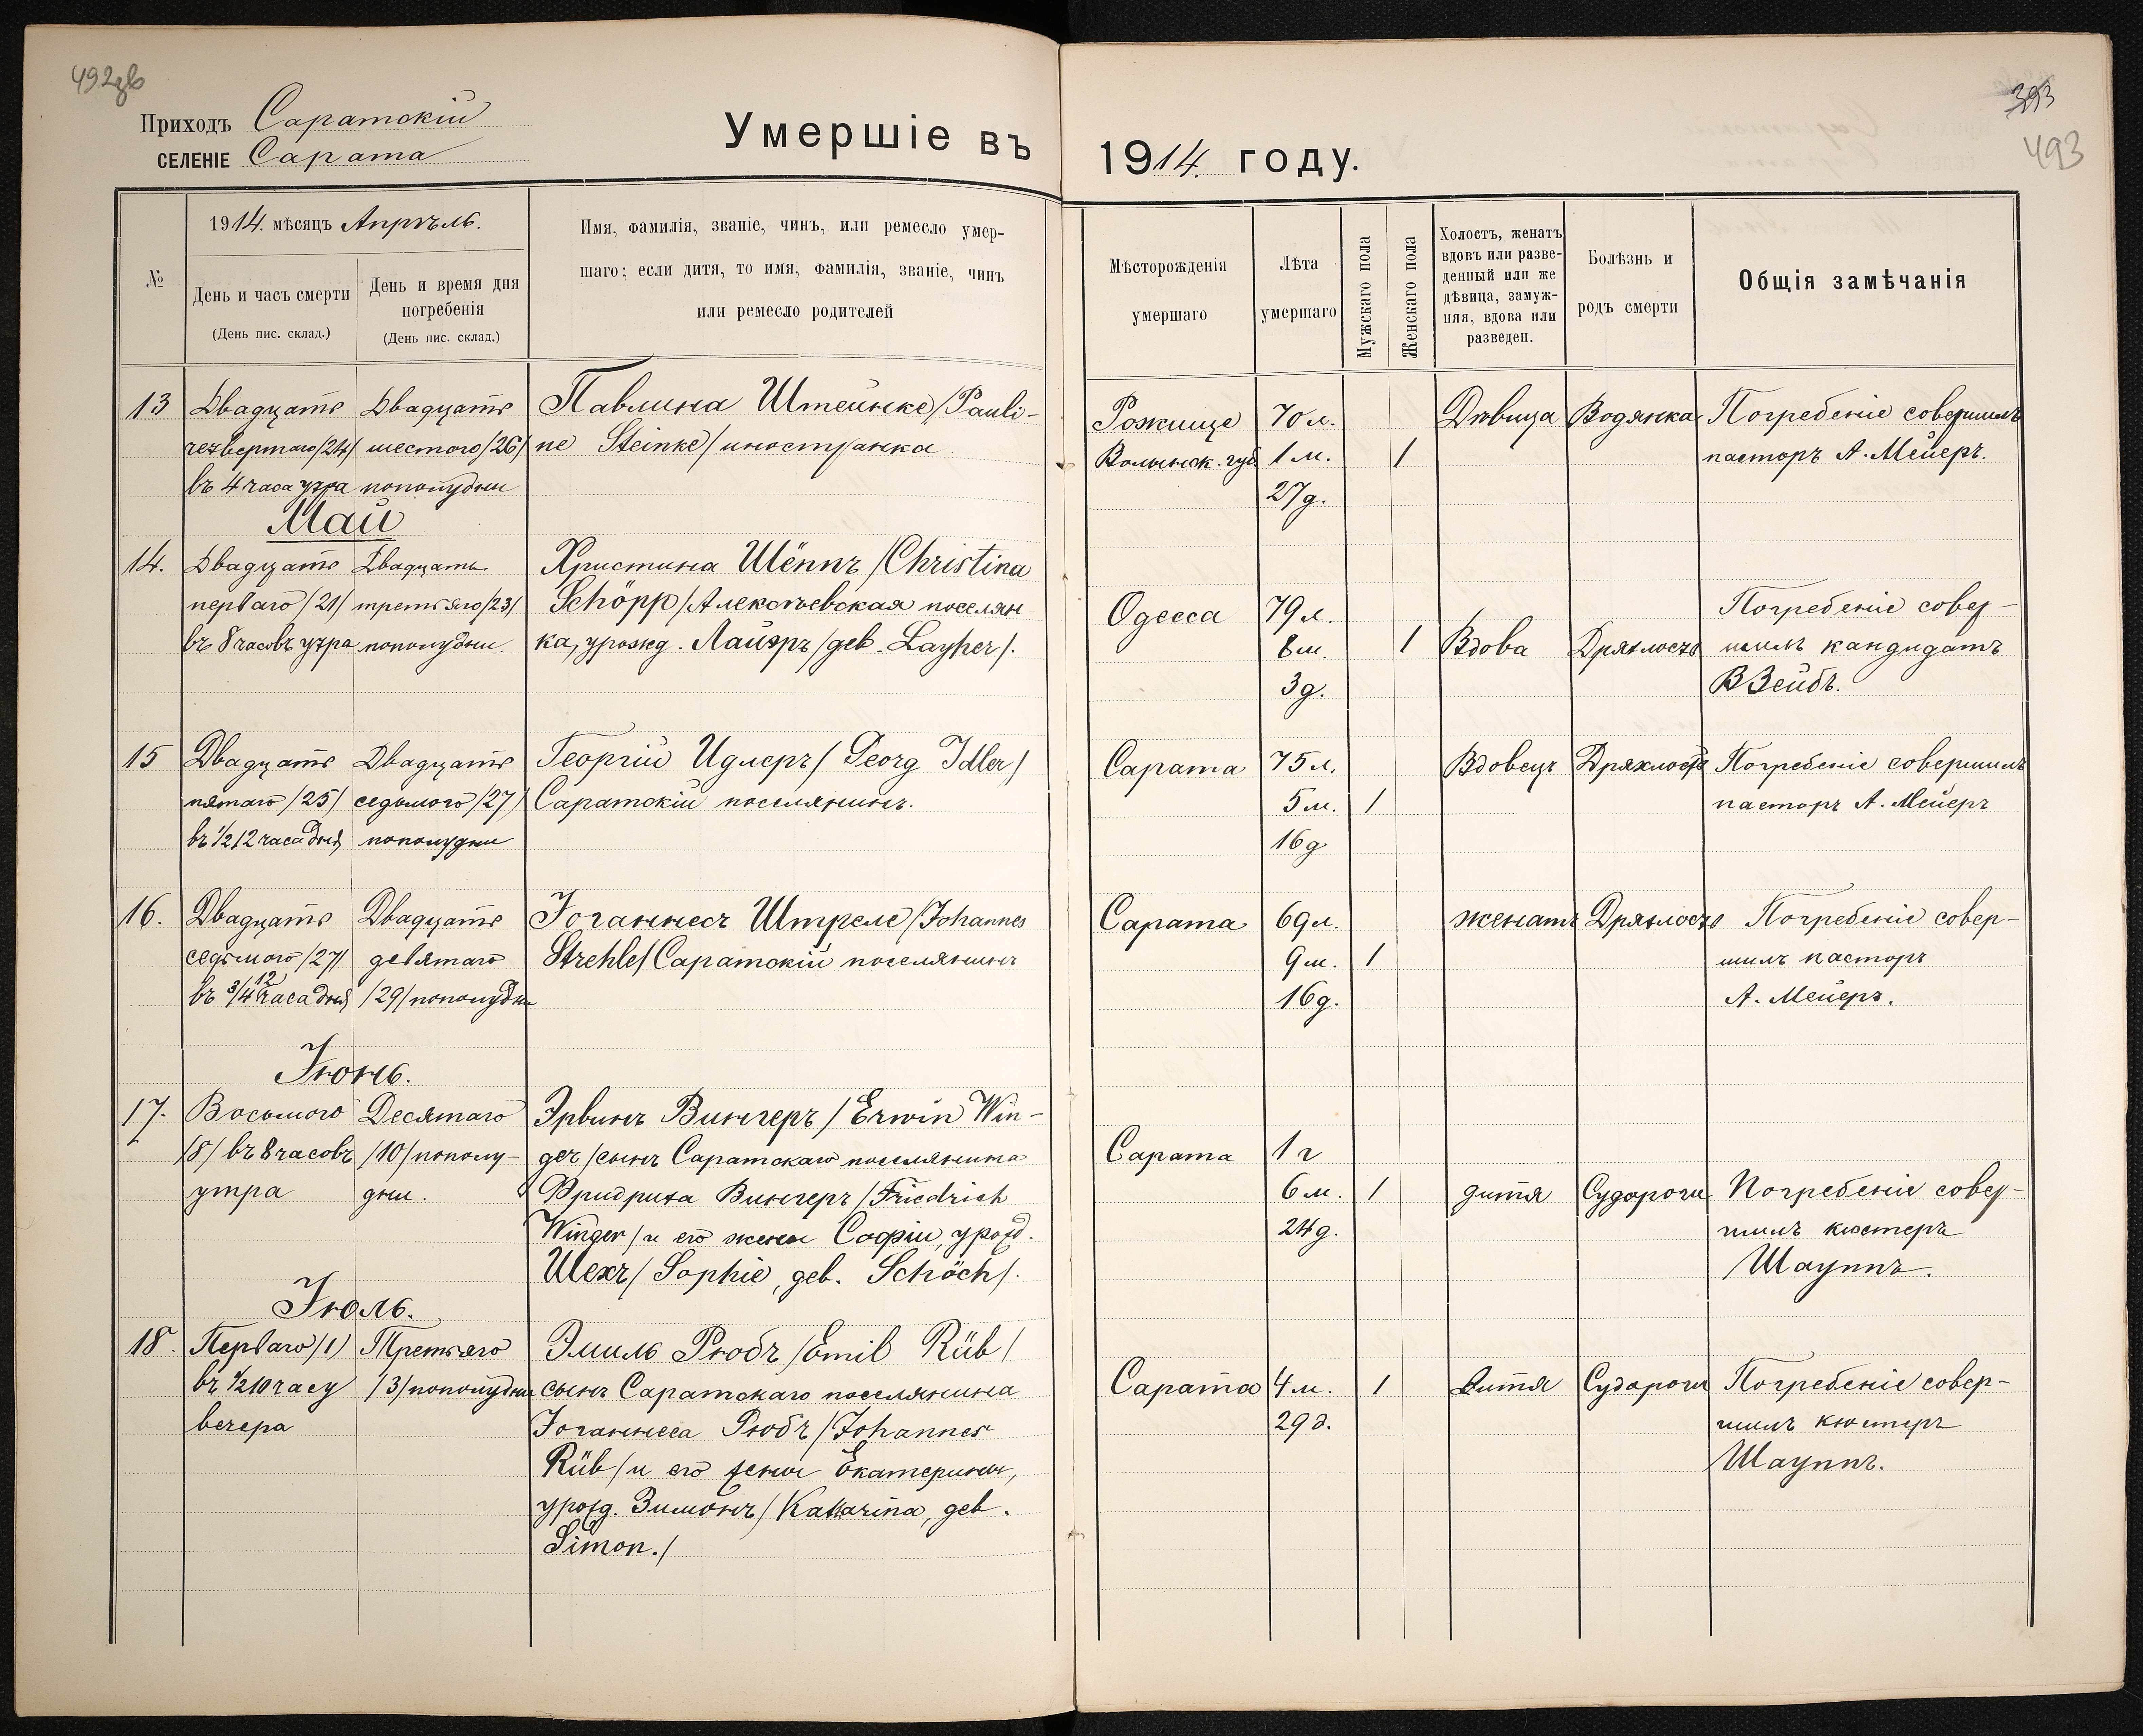 492зв
Приходъ Саратскій
СЕЛЕНІЕ Сарата
Умершіе въ
№
1914. мѣсяцъ Апрѣль.
День и часъ смерти
(День пис. склад.)
День и время дня
погребенія
(День пис. склад.)
Имя, фамилія, званіе, чинъ, или ремесло умер-
шаго; если дитя, то имя, фамилія, званіе, чинъ
или ремесло родителей
13 Двадцать Двадцать Павлина Штейнке /Pauli-
четвертаго /24/ шестого /26/ ne Steinke/ иностранка.
въ 4 часа утра пополудни
Май
14. Двадцать Двадцать Христина Шёппъ /Christina
перваго /21/ третьяго /23/ Schöpp/ Алексѣевская поселян
въ 8 часовъ утра пополудни. ка, урожд. Лайэръ /geb. Layher/.
15 Двадцать Двадцать Георгій Идлеръ /Georg Idler/
пятаго /25/ седьмого /27/ Саратскій поселянинъ.
въ 1/2 12 часа дня пополудни
16. Двадцать Двадцать Іоганнесъ Штреле /Johannes
седьмого /27/ девятаго Strehle/ Саратскій поселянинъ
въ 3/4 12 часа дня /29/ пополудни
Іюнь.
17. Восьмого Десятаго Эрвинъ Вингеръ /Erwin Win-
/8/ въ 8 часовъ /10/ пополу- ger/ сынъ Саратскаго поселянина
утра дни. Фридриха Вингеръ /Friedrich
Winger/ и его жены Софіи, урожд.
Шехъ /Sophie, geb. Schöch/.
Іюль.
18. Перваго /1/ Третьяго Эмиль Рюбъ /Emil Rüb/
въ 1/2 10 часу /3/ пополудни сынъ Саратскаго поселянина
вечера Іоганнеса Рюбъ /Johannes
Rüb/ и его жены Екатерины,
урожд. Зимонъ /Katharina, geb.
Simon./
393
493
1914. году.
Мѣсторожденія
умершаго
Лѣта
умершаго
Мужскаго пола
Женскаго пола
Холостъ, женатъ
вдовъ или разве-
денный или же
дѣвица, замуж-
няя, вдова или
разведен.
Болѣзнь и
родъ смерти
Общія замѣчанія
Рожище 70 л. Дѣвица Водянка Погребеніе совершилъ
Волынск. губ. 1 м. 1 пасторъ А. Мейеръ.
27 д.
Погребеніе совер-
Одесса 79 л.
8 м. 1 Вдова Дряхлость шилъ кандидатъ
3 д. В Зейбъ.
Сарата 75 л. Вдовецъ Дряхлость Погребеніе совершилъ
5 м. 1 пасторъ А. Мейеръ
16 д
Сарата 69 л. женатъ Дряхлость Погребеніе совер-
9 м. 1 шилъ пасторъ
16 д. А. Мейеръ.
Сарата 1 г
6 м. 1 дитя Судороги Погребеніе совер-
24 д. шилъ кюстеръ
Шауппъ.
Сарата 4 м. 1 дитя Судороги Погребеніе совер-
29 д. шилъ кюстеръ
Шауппъ.